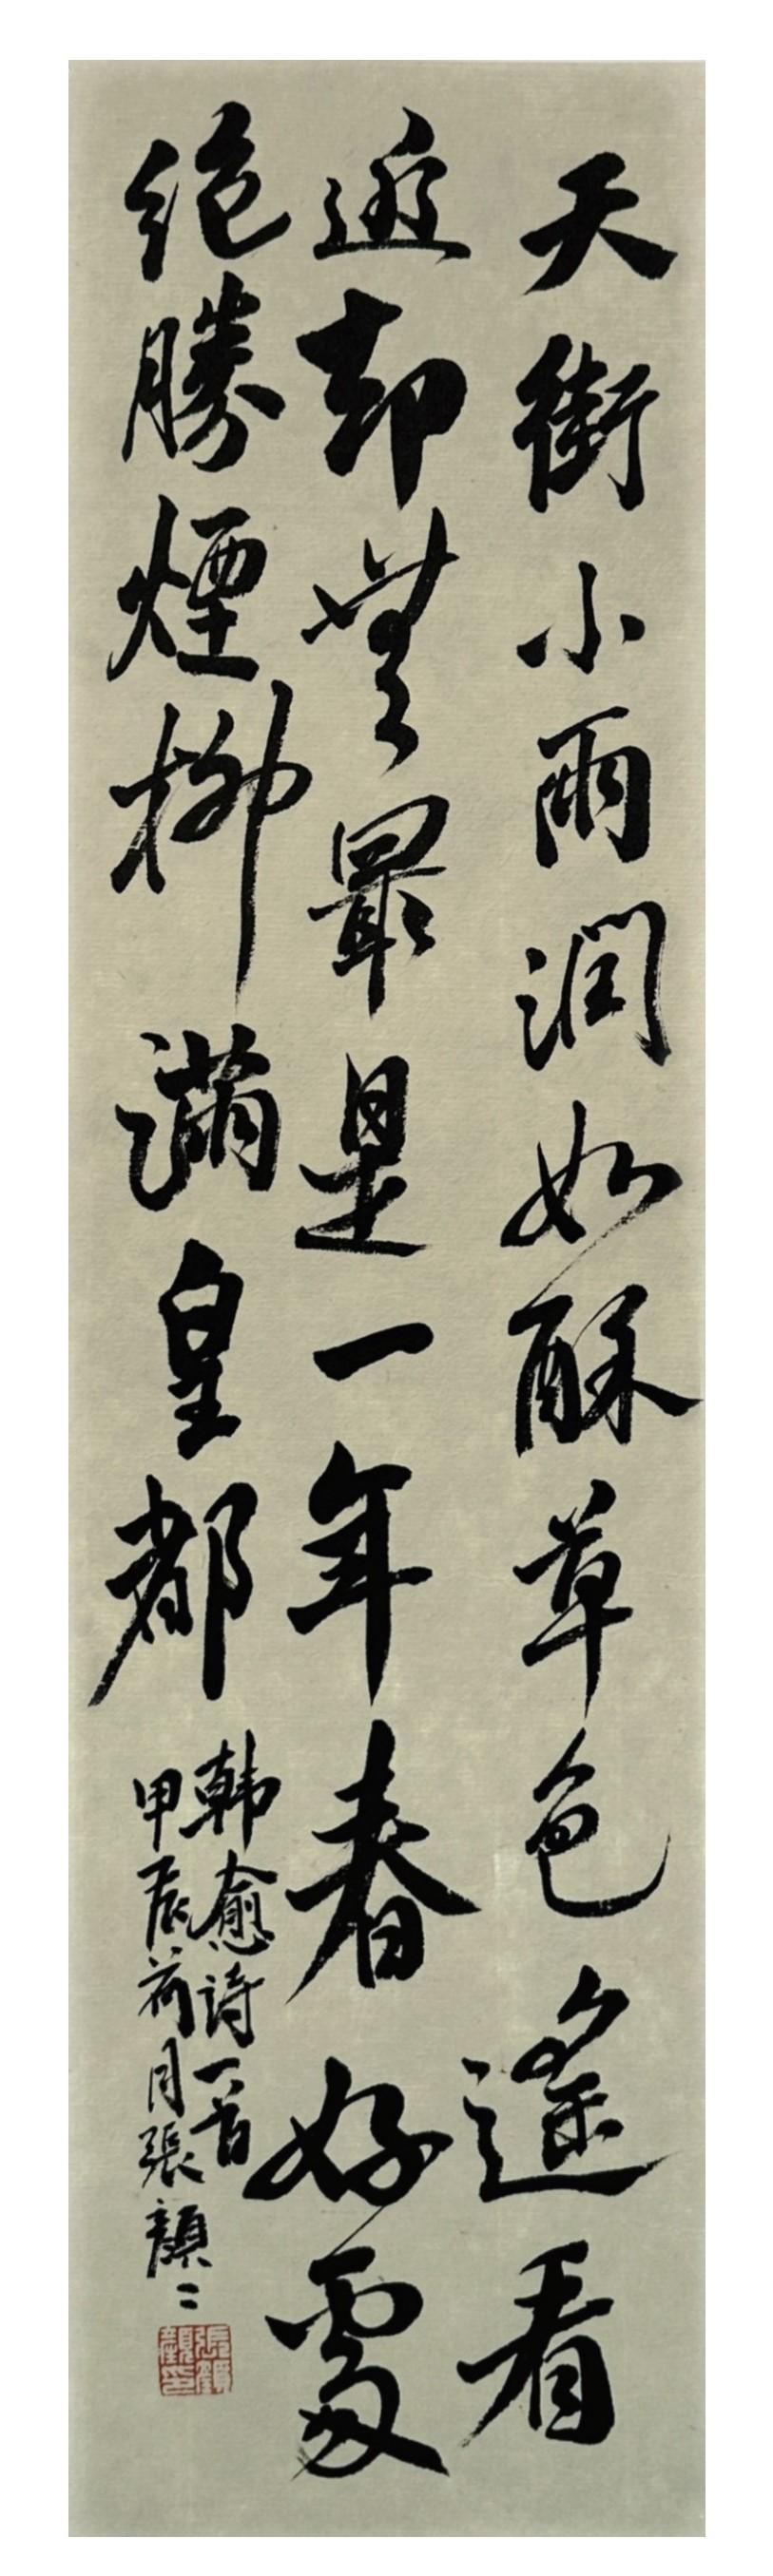 天街小雨潤如酥草色遙看
近却無最是一年春好處
絕勝煙柳滿皇都
韩愈诗一首
甲辰荷月張顔〻